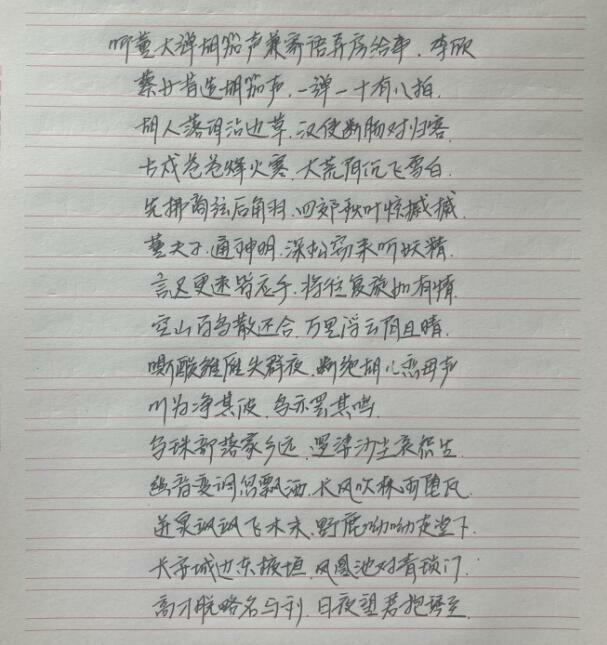 听董大弹胡笳声兼寄语弄房给事. 李欣
蔡女昔造胡笳声,一弹一十有八拍.
胡人落泪沾边草,汉使断肠对归客.
古戍苍苍烽火寒,大荒阴沉飞雪白.
先拂商弦后角羽,四郊秋叶惊摵摵.
董夫子,通神明,深松窃来听妖精.
言迟更速皆应手,将往复旋如有情.
空山百鸟散还合,万里浮云阴且晴.
嘶酸雏雁失群夜,断绝胡儿恋母声
川为净其波,鸟亦罢其鸣.
乌珠部落家乡远,逻娑沙尘哀怨生.
幽音变调忽飘洒,长风吹林雨堕瓦.
迸泉飒飒飞木末,野鹿呦呦走堂下.
长安城边东掖垣,凤凰池对青琐门.
高才脱略名与利,日夜望君抱琴至.